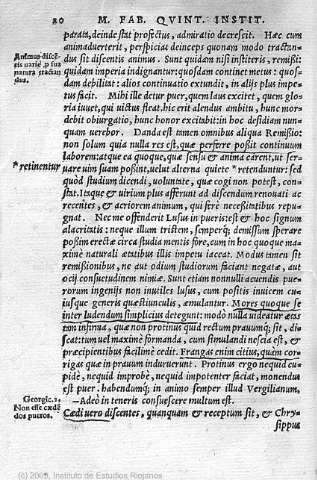 20 M. FAB. QVINT. INSTIT.
paratis, deinde stat profectus, admiratio decrescit. Hæc cum
animaduerterit, perspiciat deinceps quonam modo tractan-
dus sit discentis animus. Sunt quidam nisi institeris, remißi:
quidam imperia indignantur: quosdam continet metus: quos-
dam debilitat: alios continuatio extundit, in alijs plus impe-
tus facit. Mihi ille detur puer, quem laus excitet, quem glo-
ria iuuet, qui uictus fleat. hic erit alendus ambitu, hunc mor-
debit obiurgatio, hunc honor excitabit: in hoc desidiam nun-
quam uerebor. Danda est tamen omnibus aliqua Remißio:
non solum quia nulla res est, quæ perferre poßit continuum
laborem: atque ea quoque, quæ sensu & anima carent, ut ser-
*retinentur
uare uim suam poßint, uelut alterna quiete *retenduntur: sed
quòd studium discendi, uoluntate, quæ cogi non potest, con-
stat. Itaque & uirium plus afferunt ad discendum renouati ac
recentes, & acriorem animum, qui ferè neceßitatibus repu-
gnat. Nec me offenderit Lusus in pueris: est & hoc signum
alacritatis: neque illum tristem, semperque demissum sperare
poßim erectæ circa studia mentis fore, cum in hoc quoque ma-
ximè naturali ætatibus illis impetu iaceat. Modus tamen sit
remißionibus, ne aut odium studiorum faciant negatæ, aut
ocij consuetudinem nimiæ. Sunt etiam nonnulli acuendis pue-
rorum ingenijs non inutiles lusus, cum positis inuicem cu-
iusque generis quæstiunculis, æmulantur. Mores quoque se
inter ludendum simplicius detegunt: modo nulla uideatur ætas
tam infirma, quæ non protinus quid rectum prauumque sit, di-
scat: tum uel maximè formanda, cum simulandi nescia est, &
præcipientibus facillimè cedit. Frangas enim citius, quàm cor-
rigas quæ in prauum induruerunt. Protinus ergo nequid cu-
pidè, nequid improbè, nequid impotenter faciat, monendus
est puer. habendumque in animo semper illud Vergilianum.
—Adeò in teneris consuescere multum est.
Georgic. 2.
Non esse cædẽ
dos pueros.
Cædi uero discentes, quanquam & receptum sit, & Chry-
sippus
(c) 2005, Instituto de Estudios Riojanos